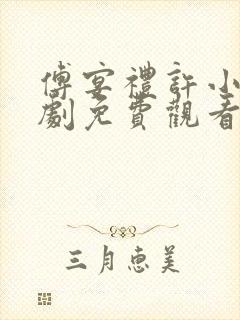 傅宴禮許小
劇免費觀看
三月惠美